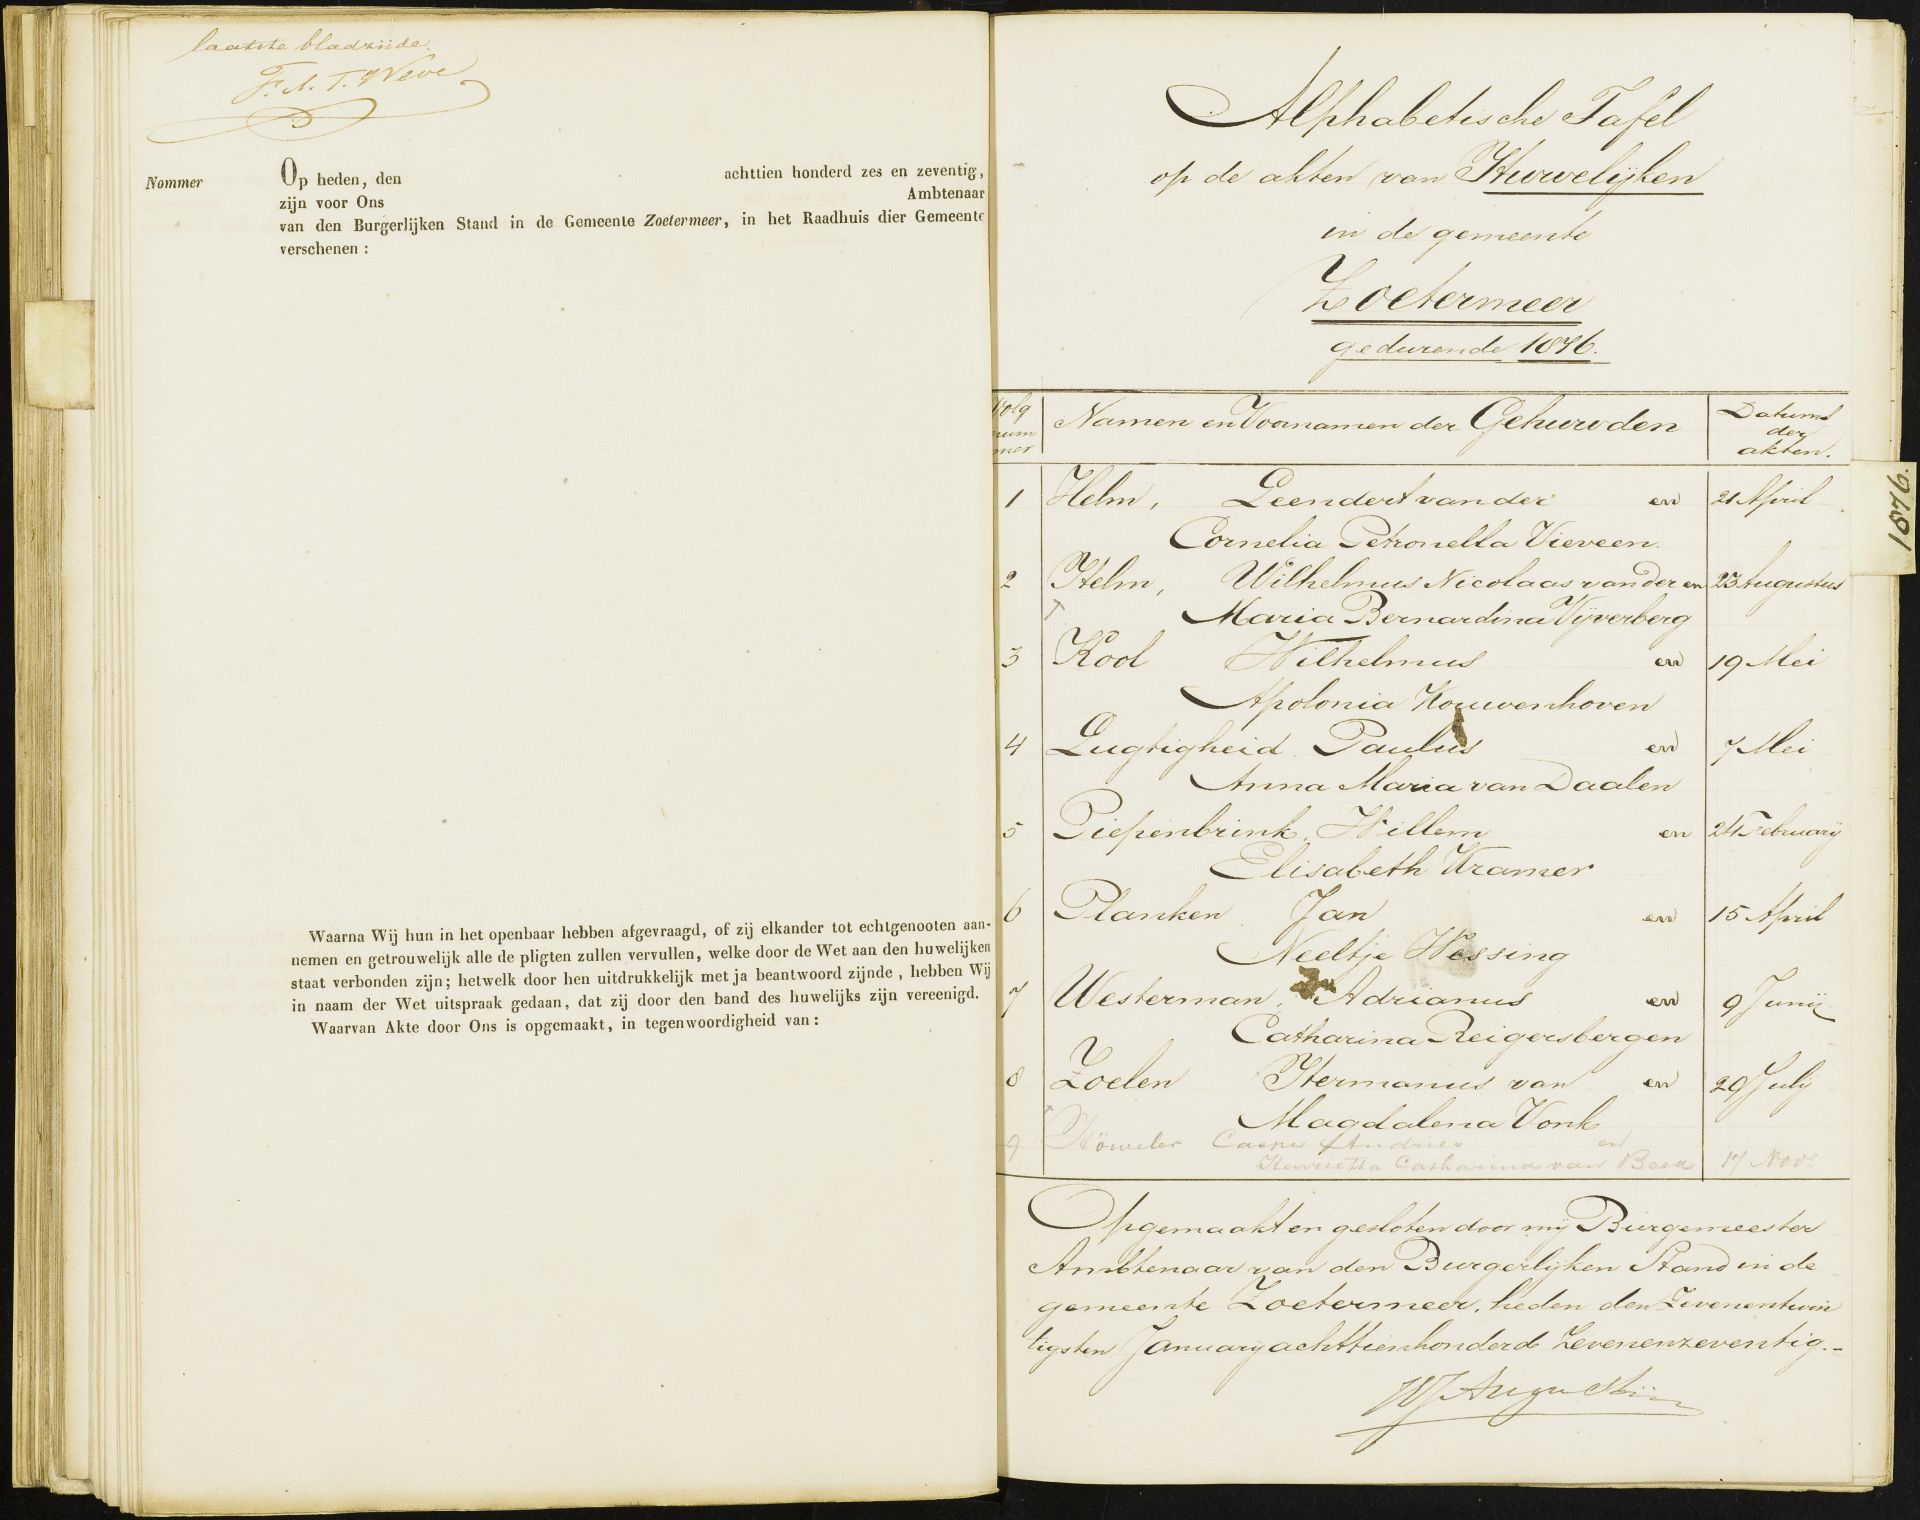 laatste bladzijde.
F. A. T. Weve
Nommer
Op heden, den achttien honderd zes en zeventig,
zijn voor Ons Ambtenaar
van den Burgerlijken Stand in de Gemeente Zoetermeer, in het Raadhuis dier Gemeente
verschenen :
Waarna Wij hun in het openbaar hebben afgevraagd, of zij elkander tot echtgenooten aan-
nemen en getrouwelijk alle de pligten zullen vervullen, welke door de Wet aan den huwelijken
staat verbonden zijn; hetwelk door hen uitdrukkelijk met ja beantwoord zijnde, hebben Wij
in naam der Wet uitspraak gedaan, dat zij door den band des huwelijks zijn vereenigd.
Waarvan Akte door Ons is opgemaakt, in tegenwoordigheid van :
Alphabetische Tafel
op de akten van Huwelijken
in de gemeente
Zoetermeer
gedurende 1876.
Volg
num
mer
Namen en Voornamen der Gehuwden
Datums
der
akten.
1 Helm, Leendert van der en 21 April
Cornelia Petronella Vieveen.
2 Helm, Wilhelmus Nicolaas van der en 23 Augustus
Maria Bernardina Vijverberg
3 Kool Wilhelmus en 19 Mei
Apolonia Kouwenhoven
4 Lugtigheid Paulus en 7 Mei
Anna Maria van Daalen
5 Piepenbrink, Willem en 24 February
Elisabeth Kramer
6 Planken Jan en 15 April
Neeltje Wessing
7 Westerman, Adrianus en 9 Junij
Catharina Reigersbergen
8 Zoelen Hermanus van en 20 July
Magdalena Vonk
9 Höweler Casper Andries en
Henrietta Catharina van Beek 17 Novr
Opgemaakt en gesloten door mij Burgemeester
Ambtenaar van den Burgerlijken Stand in de
gemeente Zoetermeer, heden den Zevenentwin
tigsten January achttienhonderd Zevenenzeventig.-
WJ Augustijn
1876.